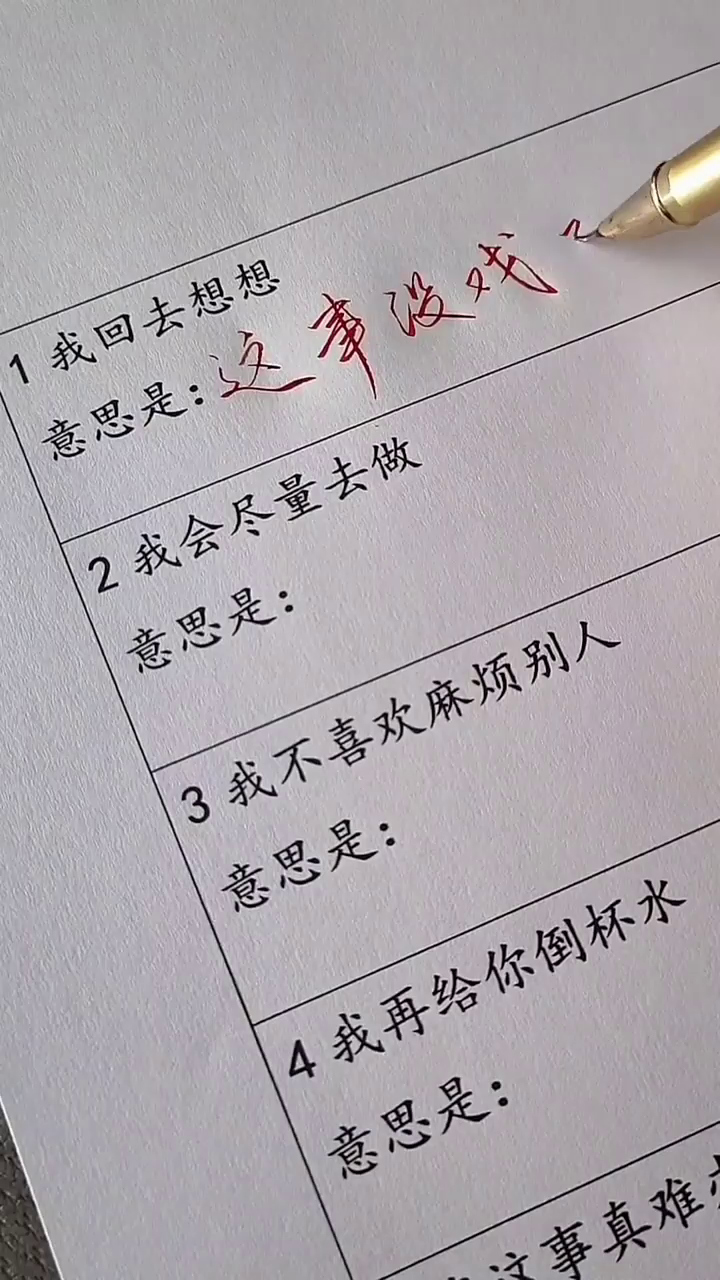 1 我回去想想
意思是：这事没戏
2 我会尽量去做
意思是：
3 我不喜欢麻烦别人
意思是：
4 我再给你倒杯水
意思是：
这事真难